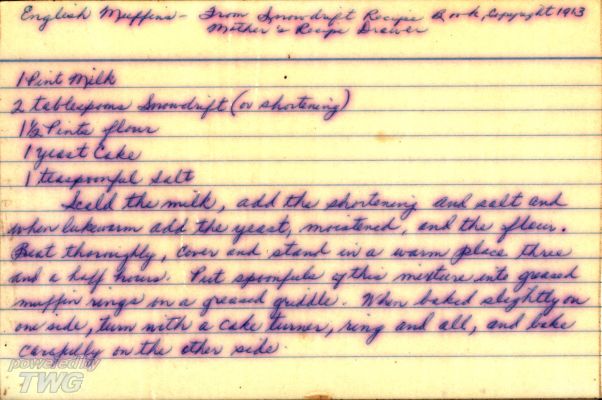 English Muffins - From Snowdrift Recipe Book, Copyright 1913
Mother's Recipe Drawer
1 Pint Milk
2 tablespoons Snowdrift (or shortening)
1½ Pints flour
1 yeast Cake
1 teaspoonful salt
Scald the milk, add the shortening and salt and
when lukewarm add the yeast, moistened, and the flour.
Beat thoroughly, cover and stand in a warm place three
and a half hours. Put spoonfuls of this mixture into greased
muffin rings on a greased griddle. When baked slightly on
one side, turn with a cake turner, ring and all, and bake
carefully on the other side.
powered by
TWG